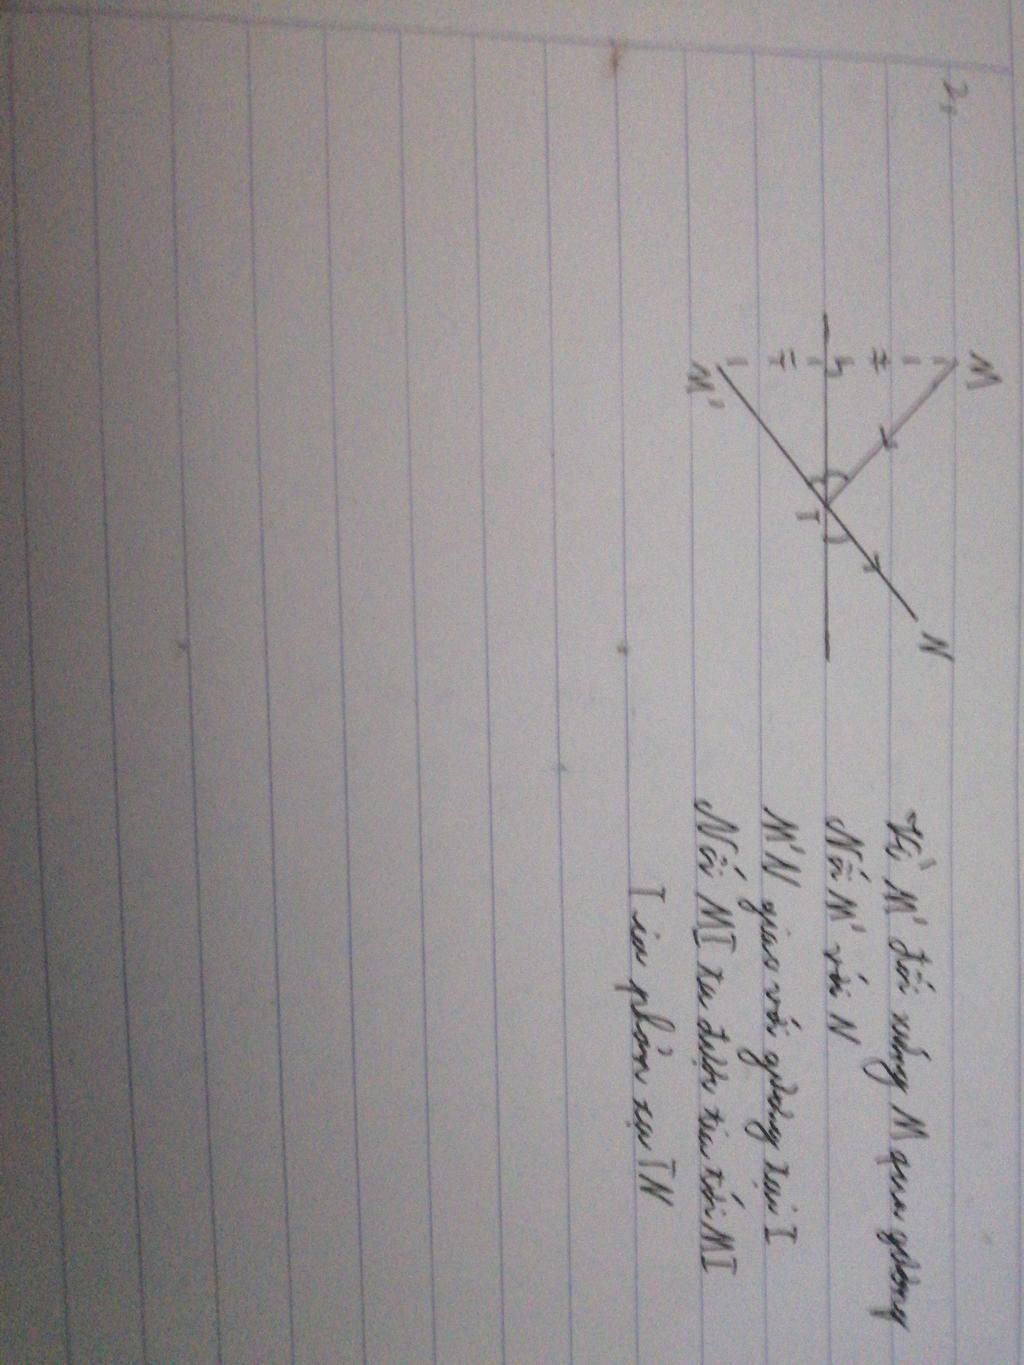 2,
M
N
I
M'
Vẽ M' đối xứng M qua gương
Nối M' với N
M'N giao với gương tại I
Nối MI ta được tia tới MI
Tia phản xạ IN